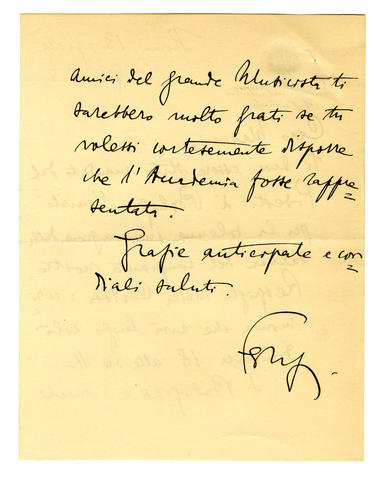 amici del grande Musicista ti
sarebbero molto grati se tu
volessi cortesemente disporre
che l'Accademia fosse rappre=
sentata.
Grazie anticipate e cor=
diali saluti.